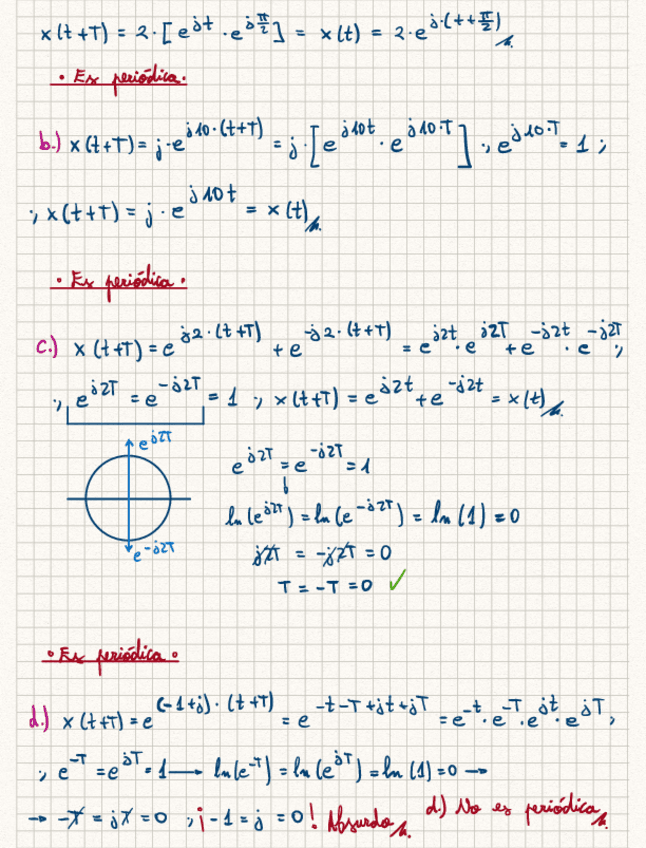 x(t+T) = 2·[e^{jt}·e^{j\frac{π}{2}}] = x(t) = 2·e^{j·(t+\frac{π}{2})}
· Es periódica ·
b.) x(t+T) = j·e^{j10·(t+T)} = j·[e^{j10t}·e^{j10·T}] ·, e^{j10·T} = 1 ;
; x(t+T) = j·e^{j10t} = x(t)
· Es periódica ·
c.) x(t+T) = e^{j2·(t+T)} + e^{-j2·(t+T)} = e^{j2t}·e^{j2T} + e^{-j2t}·e^{-j2T} ;
; e^{j2T} = e^{-j2T} = 1 ; x(t+T) = e^{j2t} + e^{-j2t} = x(t)
e^{j2T}
e^{-j2T}
e^{j2T} = e^{-j2T} = 1
ln(e^{j2T}) = ln(e^{-j2T}) = ln(1) = 0
j2T = -j2T = 0
T = -T = 0 ✓
· Es periódica ·
d.) x(t+T) = e^{(-1+j)·(t+T)} = e^{-t-T+jt+jT} = e^{-t}·e^{-T}·e^{jt}·e^{jT} ;
; e^{-T} = e^{jT} = 1 → ln(e^{-T}) = ln(e^{jT}) = ln(1) = 0 →
→ -T = jT = 0 ; ¡-1 = j = 0! Absurdo d.) No es periódica